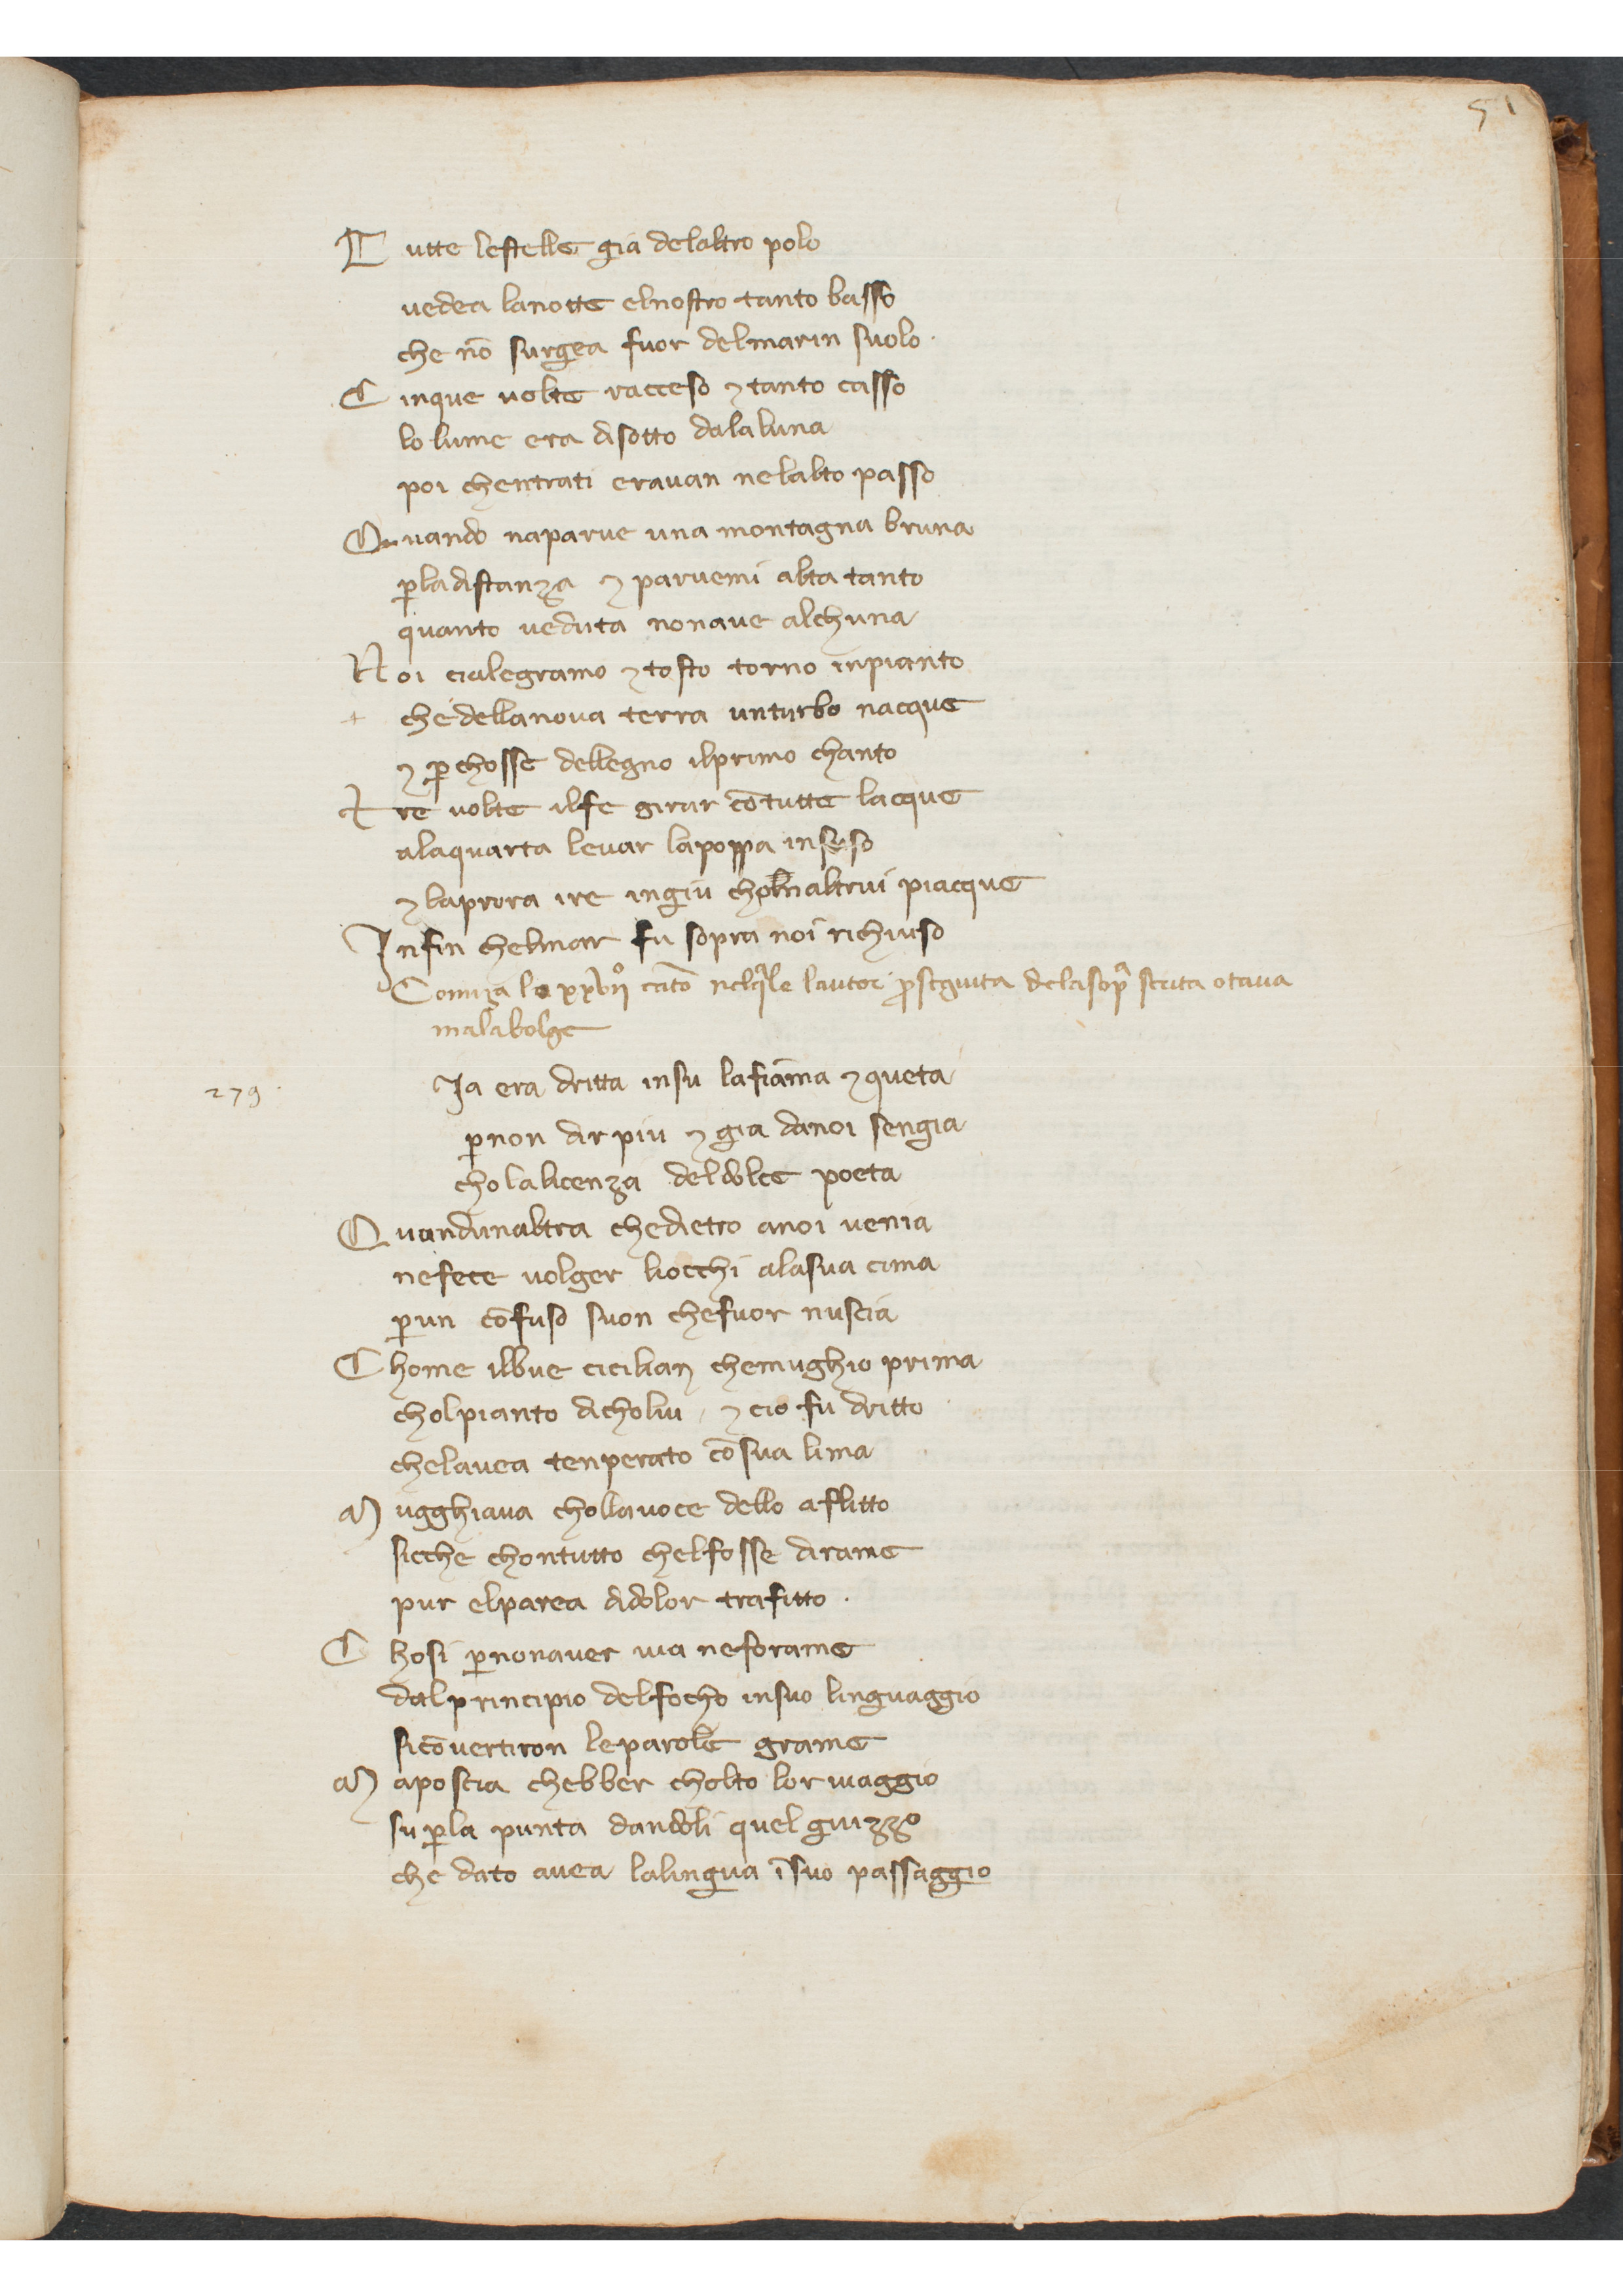 51
T utte lestelle gia delaltro polo
vedea lanotte elnostro tanto basso
che nō surgea fuor delmarin suolo ·
C inque volte racceso ⁊ tanto casso
lo lume era disotto dalaluna
poi chentrati eravan nelalto passo
Q uando naparve una montagna bruna
ꝑladistanza ⁊ parvemi alta tanto
quanto veduta nonave alchuna
N oi cialegramo ⁊ tosto torno inpianto
+ che dellanova terra unturbo nacque
⁊ ꝑchosse dellegno ilprimo chanto
T re volte ilfe girar cō tutte lacque
alaquarta levar lapoppa insuso
⁊ laprora ire ingiu chomaltrui piacque
Infin chelmar fu sopra noi richiuso
Comīza lo xxvij° cātō nelq̄le lautor ꝓseguita delasopᵃ scrita otava
malabolge
279 ·
Ja era dritta insu lafiāma ⁊ queta
ꝑnon dir piu ⁊ gia danoi sengia
cholalicenza deldolce poeta
Q uandunaltra chedietro anoi venia
nefece volger liocchi alasua cima
ꝑun cōfuso suon chefuor nuscia
C home ilbue cicilian chemughio prima
cholpianto dicholui / ⁊ cio fu dritto
chelavea tenperato cōsua lima
M ugghiava chollavoce dello aflitto
sicche chontutto chelfosse dirame
pur elparea didolor trafitto ·
C hosi ꝑnonaver via neforame
dalprincipio delfocho insuo linguaggio
sicōvertiron leparole grame
M aposcia chebber cholto lor viaggio
su ꝑla punta dandoli quel guizzo
che dato avea lalingua īsuo passaggio